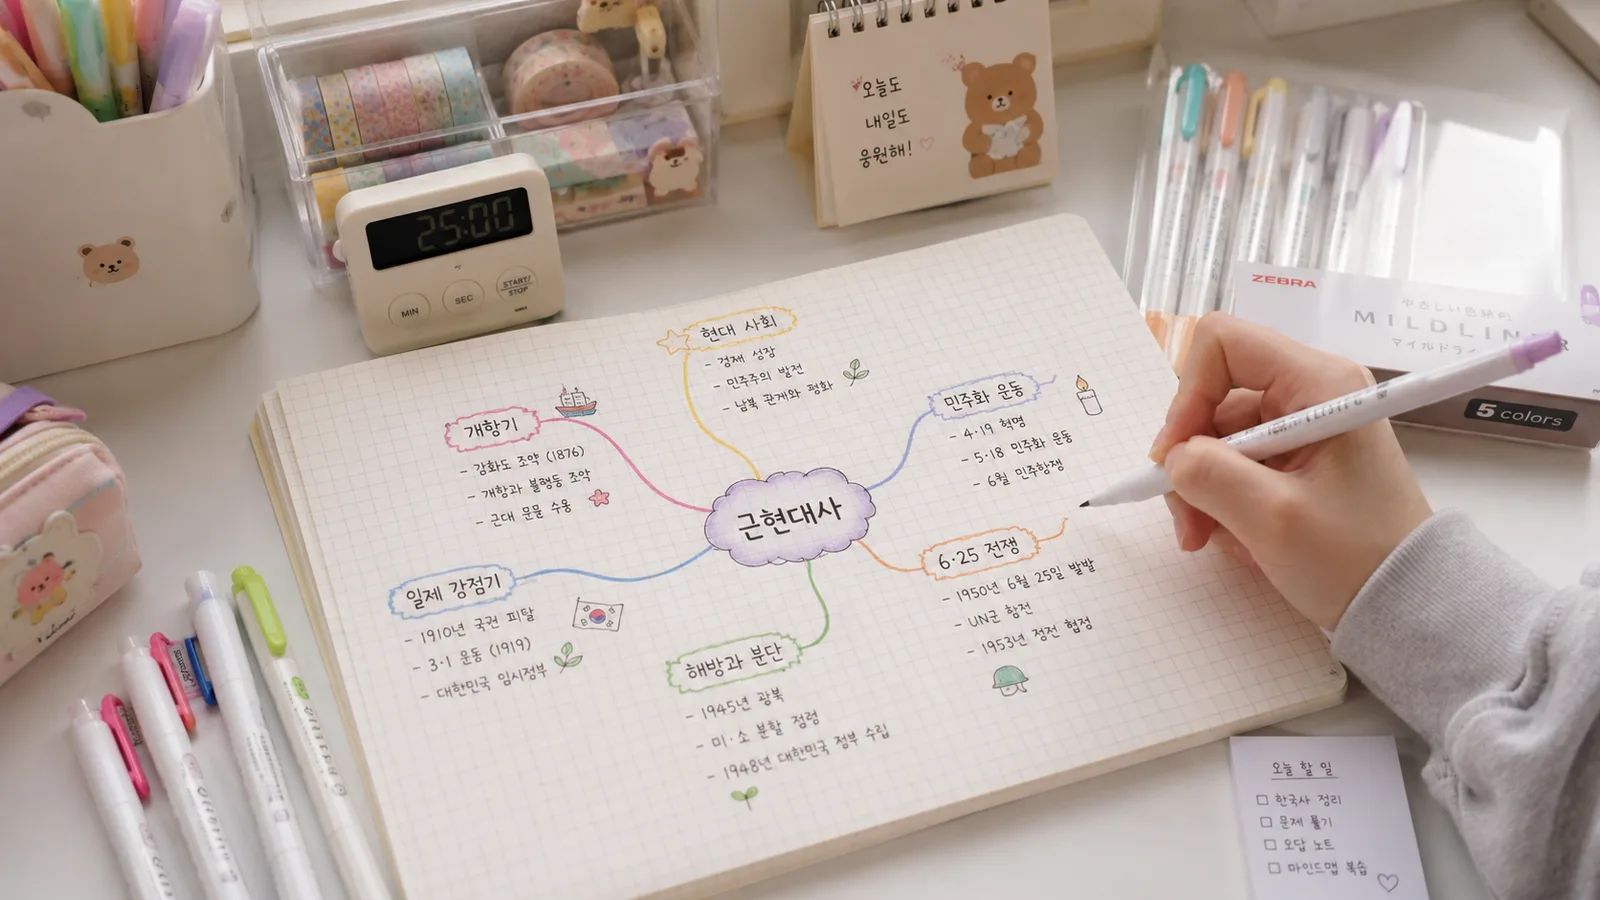 25:00
MIN
SEC
START/
STOP
오늘도
내일도
응원해!
ZEBRA
MILDLINER
マイルドライ
5 colors
근현대사
현대 사회
- 경제 성장
- 민주주의 발전
- 남북 관계와 평화
개항기
- 강화도 조약 (1876)
- 개항과 불평등 조약
- 근대 문물 수용
민주화 운동
- 4·19 혁명
- 5·18 민주화 운동
- 6월 민주항쟁
일제 강점기
- 1910년 국권 피탈
- 3·1 운동 (1919)
- 대한민국 임시정부
6·25 전쟁
- 1950년 6월 25일 발발
- UN군 참전
- 1953년 정전 협정
해방과 분단
- 1945년 광복
- 미·소 분할 점령
- 1948년 대한민국 정부 수립
오늘 할 일
□ 한국사 정리
□ 문제 풀기
□ 오답 노트
□ 마인드맵 복습